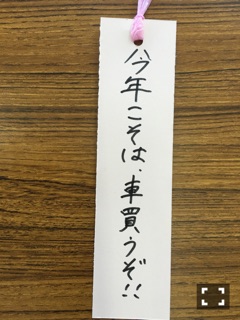 今年こそは、車買うぞ!!